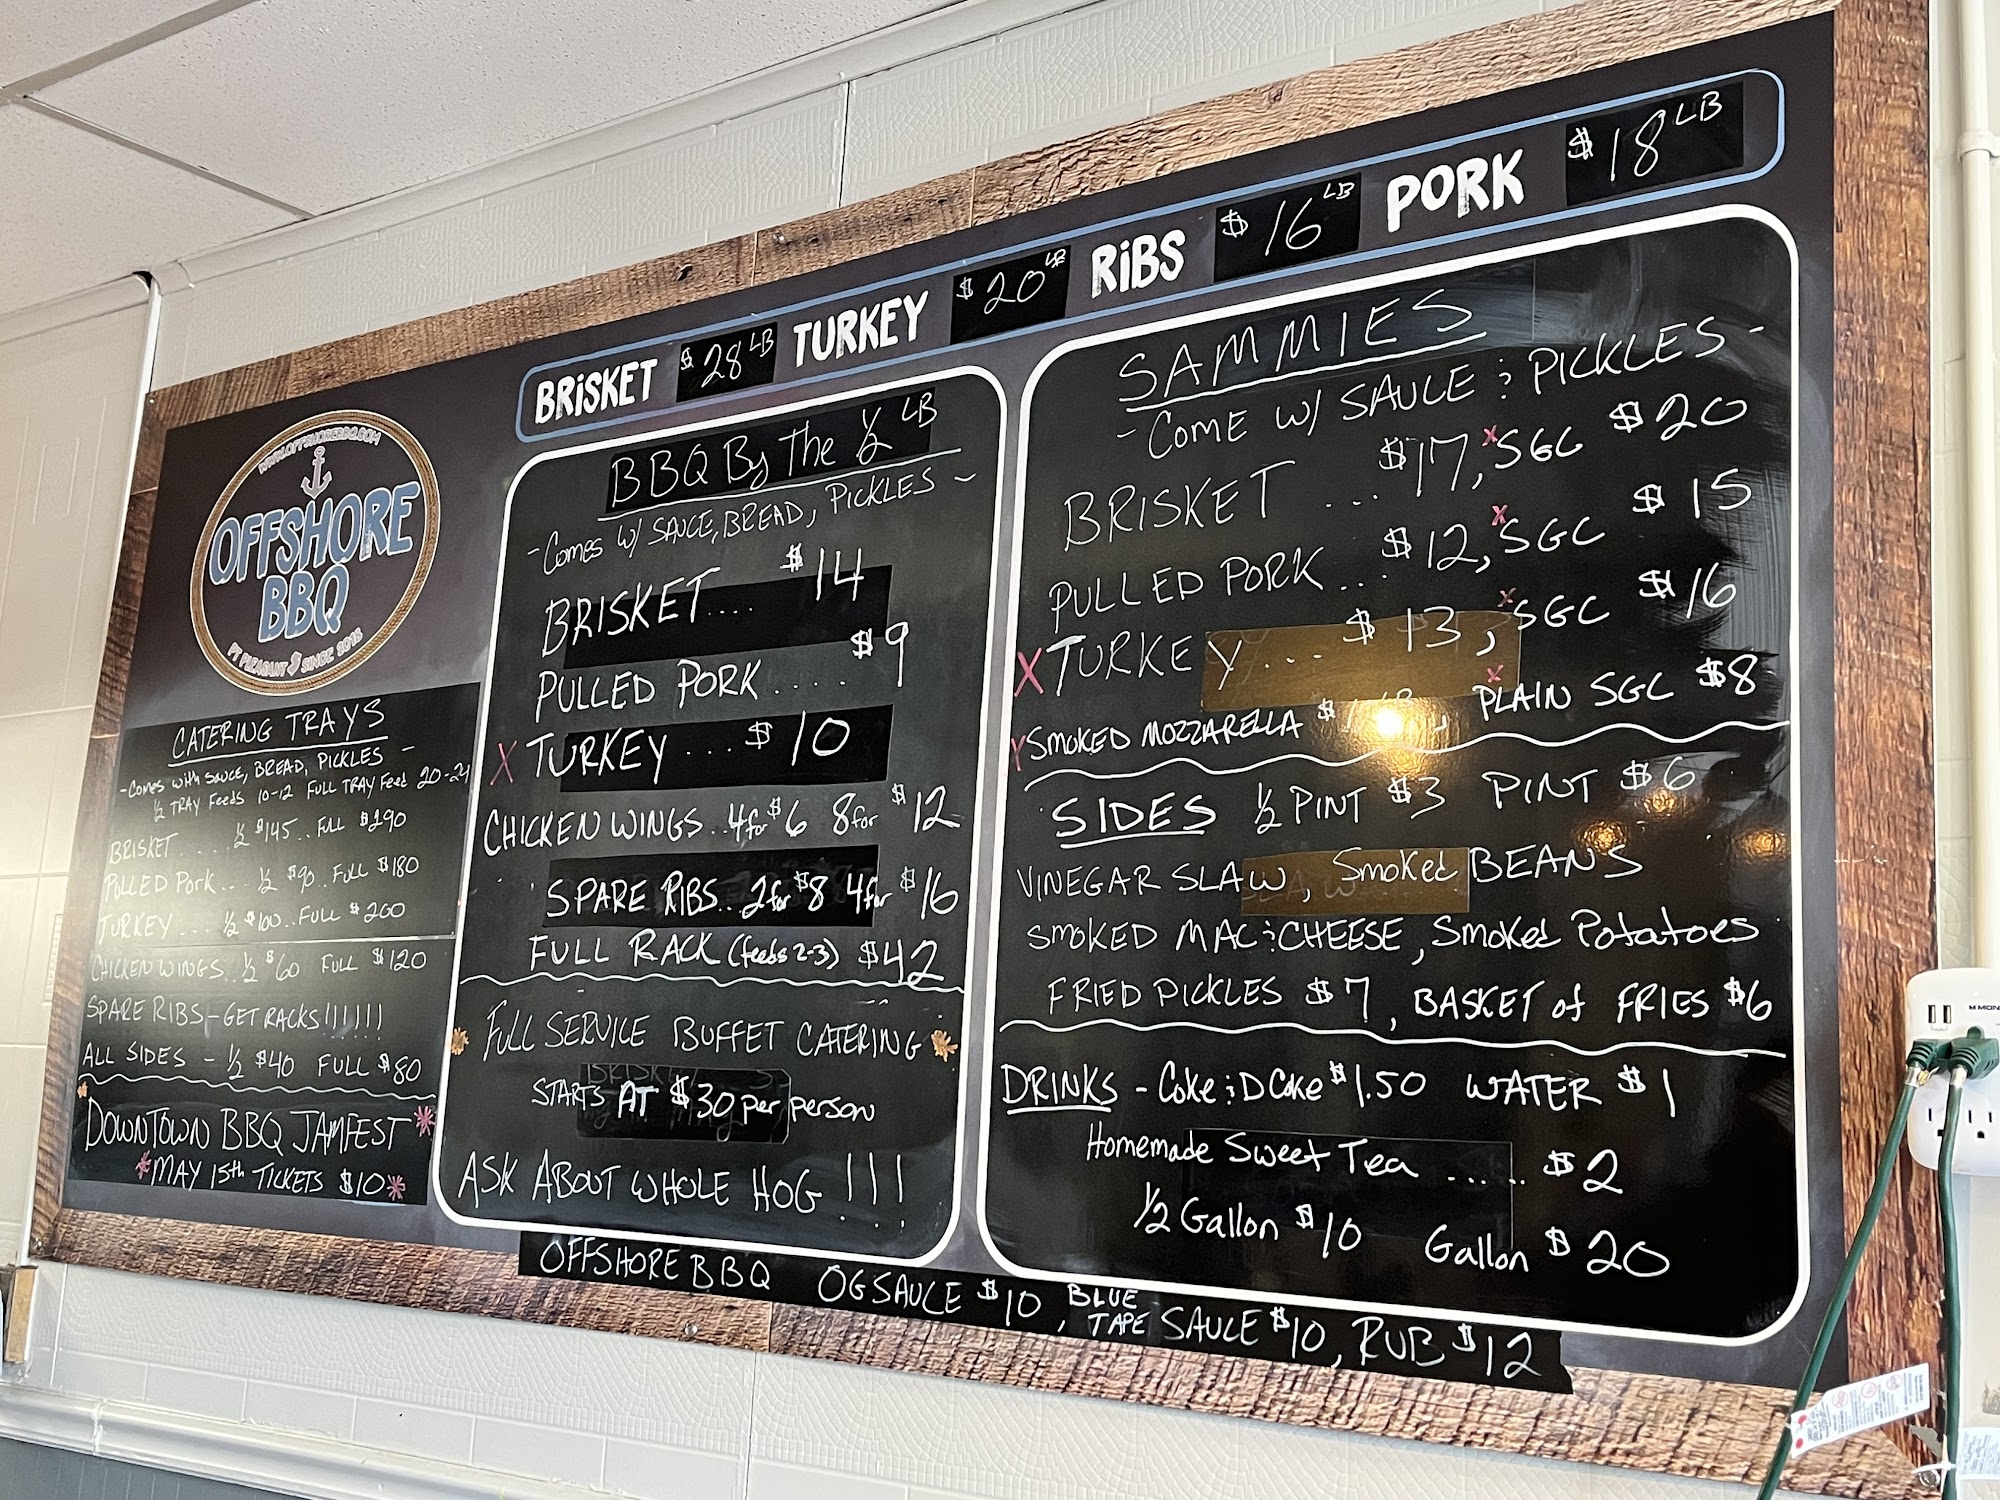 BRISKET $28 LB TURKEY $20 LB RIBS $16 LB PORK $18 LB
WWW.OFFSHOREBBQ.COM
OFFSHORE
BBQ
PT PLEASANT SINCE 2018
CATERING TRAYS
-Comes with SAUCE, BREAD, PICKLES -
½ TRAY Feeds 10-12 FULL TRAY Feed 20-24
BRISKET..... ½ $145.. FULL $290
PULLED PORK... ½ $90.. FULL $180
TURKEY.... ½ $100.. FULL $200
CHICKEN WINGS.. ½ $60 FULL $120
SPARE RIBS - GET RACKS!!!!!!
ALL SIDES - ½ $40 FULL $80
DOWNTOWN BBQ JAMFEST*
*MAY 15th TICKETS $10*
BBQ By The ½ LB
-Comes w/ SAUCE, BREAD, PICKLES -
BRISKET.... $14
PULLED PORK..... $9
X TURKEY... $10
CHICKEN WINGS.. 4 for $6 8 for $12
SPARE RIBS.. 2 for $8 4 for $16
FULL RACK (feeds 2-3) $42
FULL SERVICE BUFFET CATERING
STARTS AT $30 per person
ASK ABOUT WHOLE HOG !!!
SAMMIES
- COME W/ SAUCE & PICKLES -
BRISKET ... $17, xSGC $20
PULLED PORK... $12, xSGC $15
X TURKEY ... $13, xSGC $16
X SMOKED MOZZARELLA $ LB, x PLAIN SGC $8
SIDES ½ PINT $3 PINT $6
VINEGAR SLAW, Smoked BEANS
SMOKED MAC & CHEESE, Smoked Potatoes
FRIED PICKLES $7, BASKET of FRIES $6
DRINKS - Coke & D Coke $1.50 WATER $1
Homemade Sweet Tea ..... $2
½ Gallon $10 Gallon $20
OFFSHORE BBQ OG SAUCE $10, BLUE TAPE SAUCE $10, RUB $12